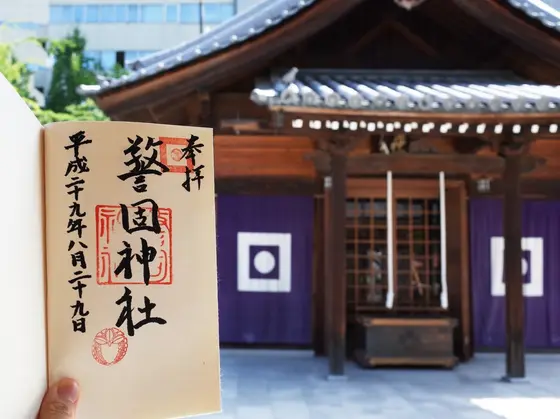 奉拝
警固神社
平成二十九年八月二十九日